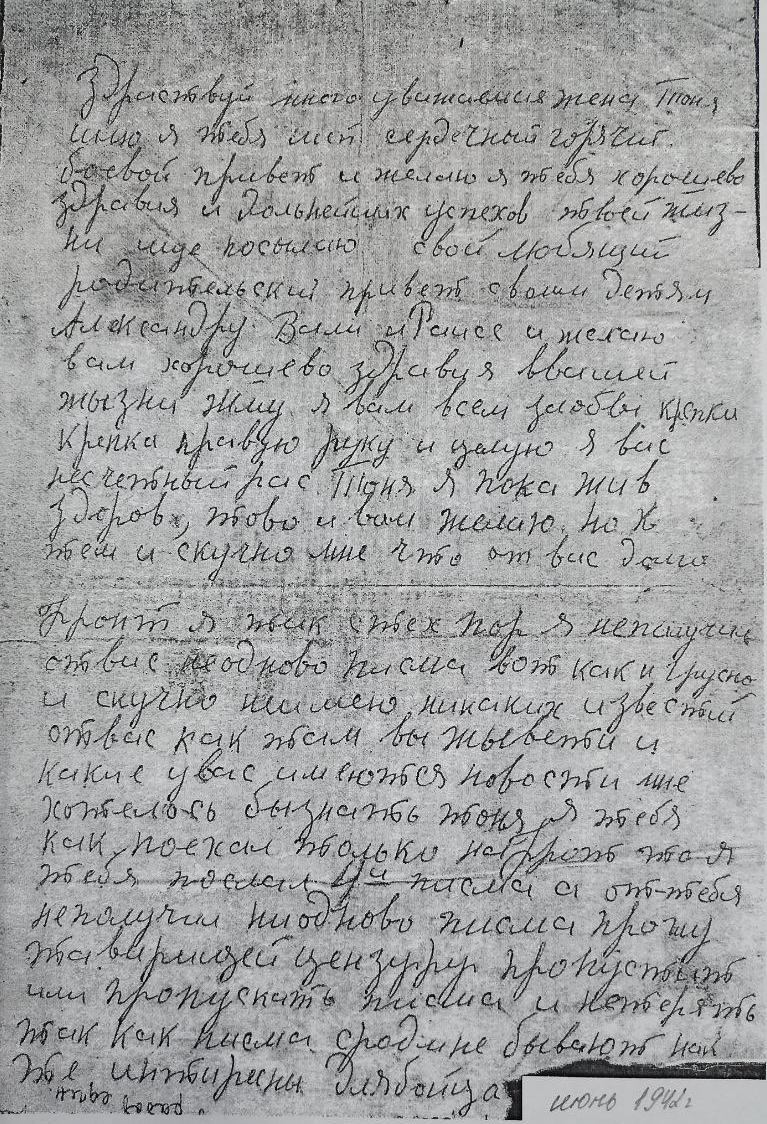 Здраствуй много уважаимая жена Тоня
шлю я тебя сердечный горячий
боевой привет и желаю я тебя хорошево
здравия и дольнейших успехов твоей жиз-
ни посылаю свой любящий
родительский привет своим детям
Александру Вали и Раисе и желаю
вам хорошево здравия ввашей
жызни жму я вам всем крепки
крепка правую руку и цалую я вас
несчетный рас. Тоня я пока жив
здоров, тово и вам желаю. но
тем и скучно мне что от вас
Фронт я так стех пор я неполучил
отвас неодново писма вот как и грусно
и скучно неимею никаких известий
отвас как там вы жывети и
какие увас имеются новости мне
хотелось бызнать тоня я тебя
как поехал только нафронт то я
тебя послал 4и писма а от-тебя
неполучил ниодново писма прошу
таварищей цензурр пропустить
или пропускать писма и нетерять
так как писма сродине бывают
те интиресны длябойца
июнь 1942г